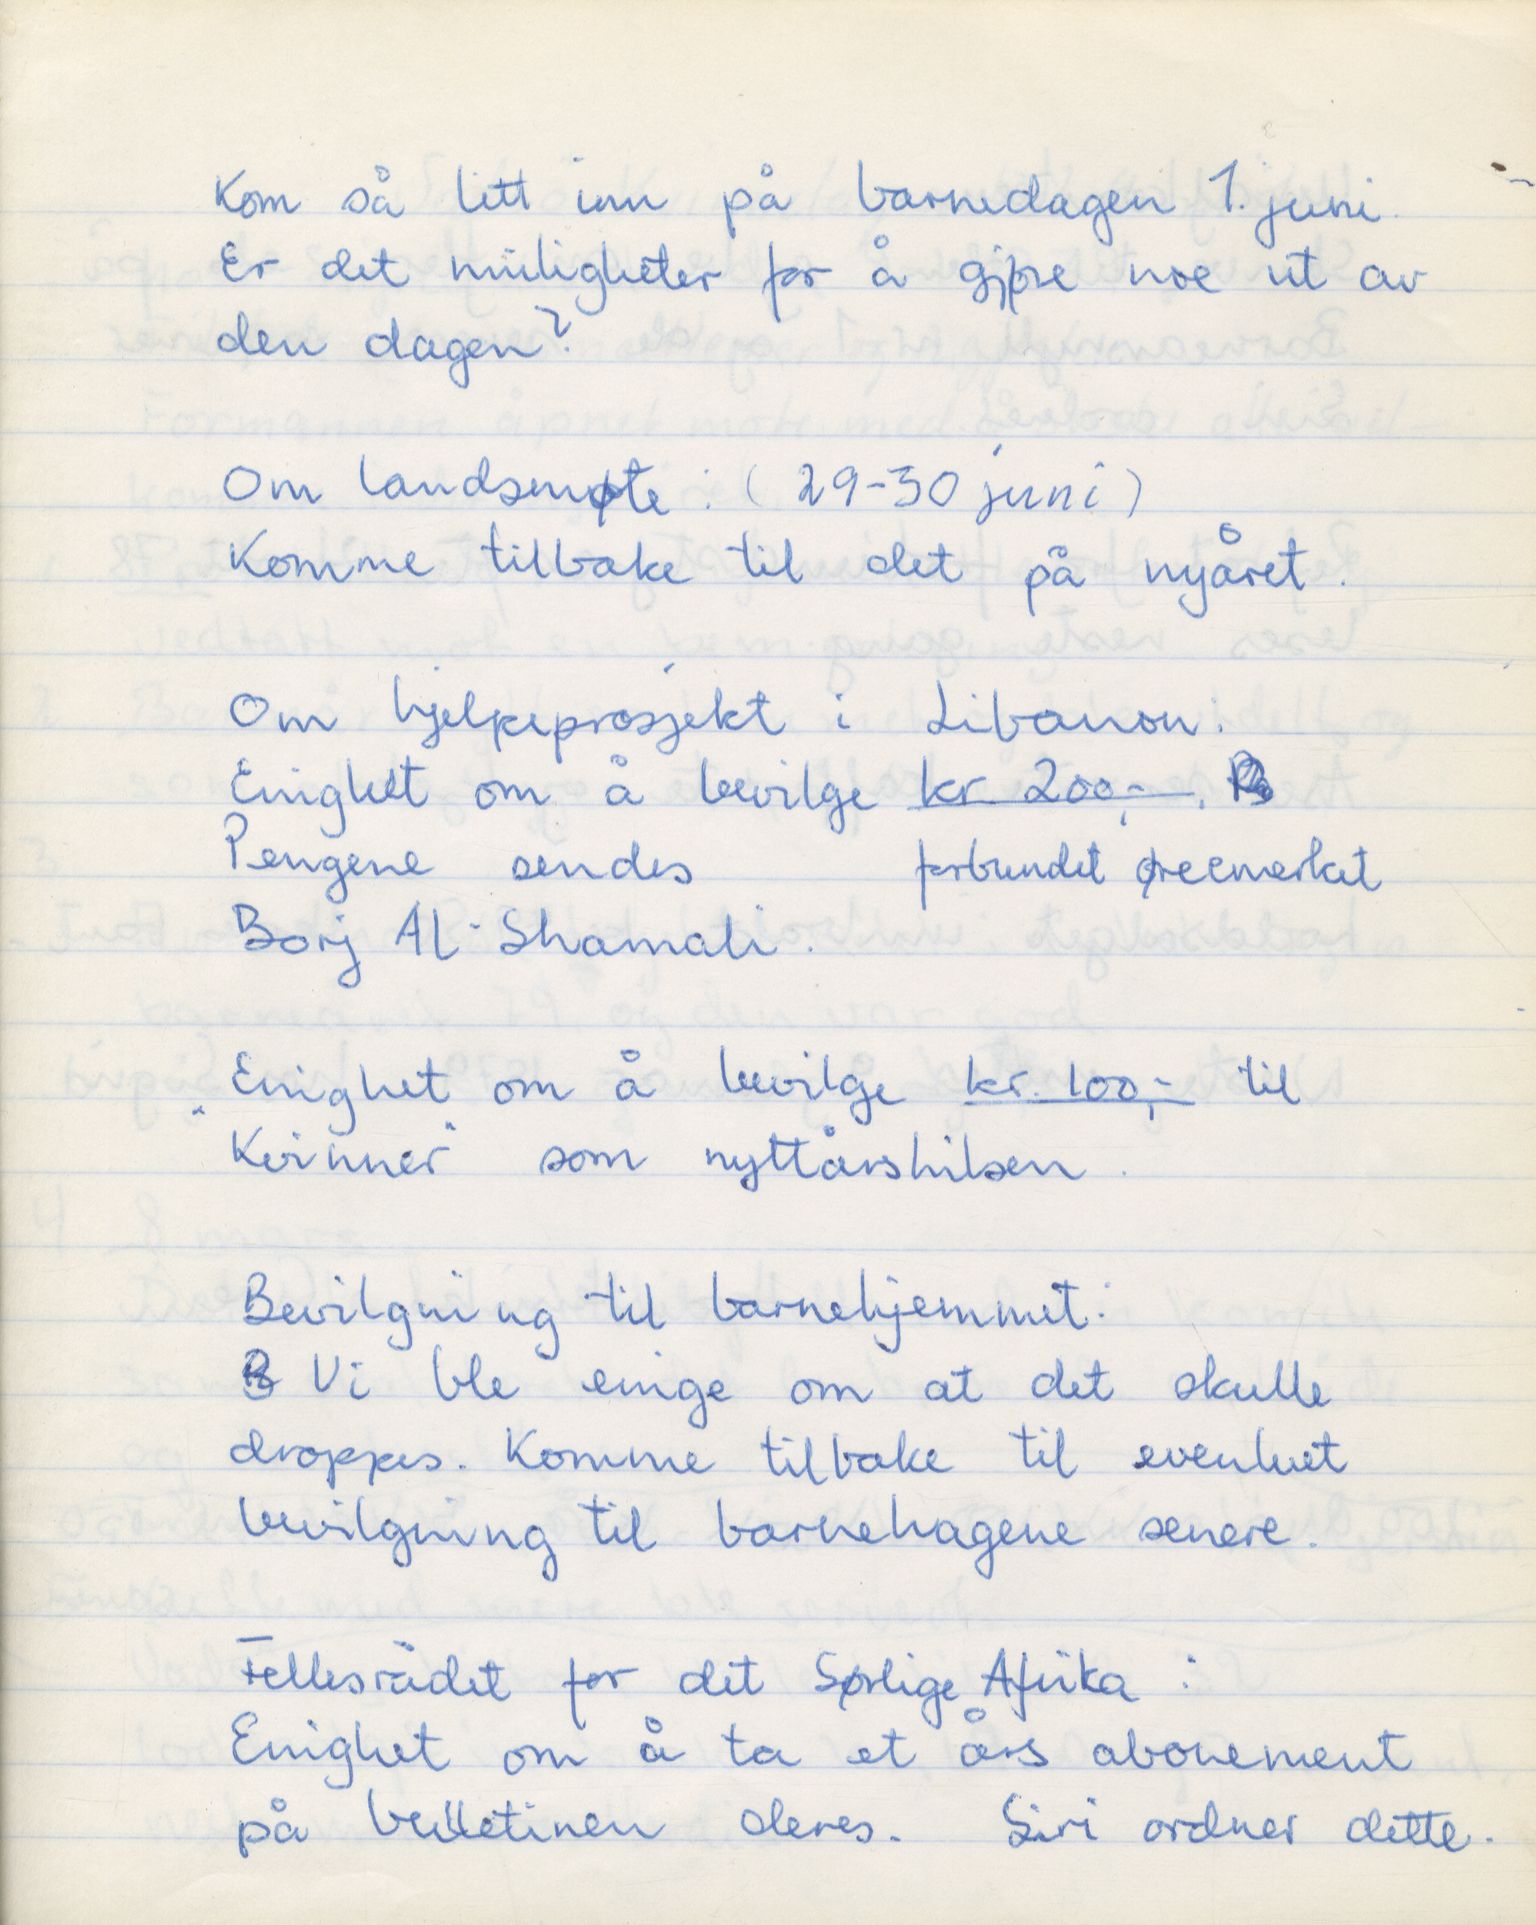 Kom så litt inn på barnedagen 1. juni.
Er det muligheter for å gjøre noe ut av
den dagen?
Om landsmøte : (29-30 juni)
Komme tilbake til det på nyåret.
Om hjelpeprosjekt i Libanon:
Enighet om å bevilge kr 200,-.
Pengene sendes forbundet øremerket
Borj Al-Shamali.
Enighet om å bevilge kr. 100,- til
"Kvinner" som nyttårshilsen.
Bevilgning til barnehjemmet:
Vi ble enige om at det skulle
droppes. Komme tilbake til eventuet
bevilgning til barnehagene senere.
Fellesrådet for det Sørlige Afrika :
Enighet om å ta et års abonement
på bulletinen deres. Siri ordner dette.